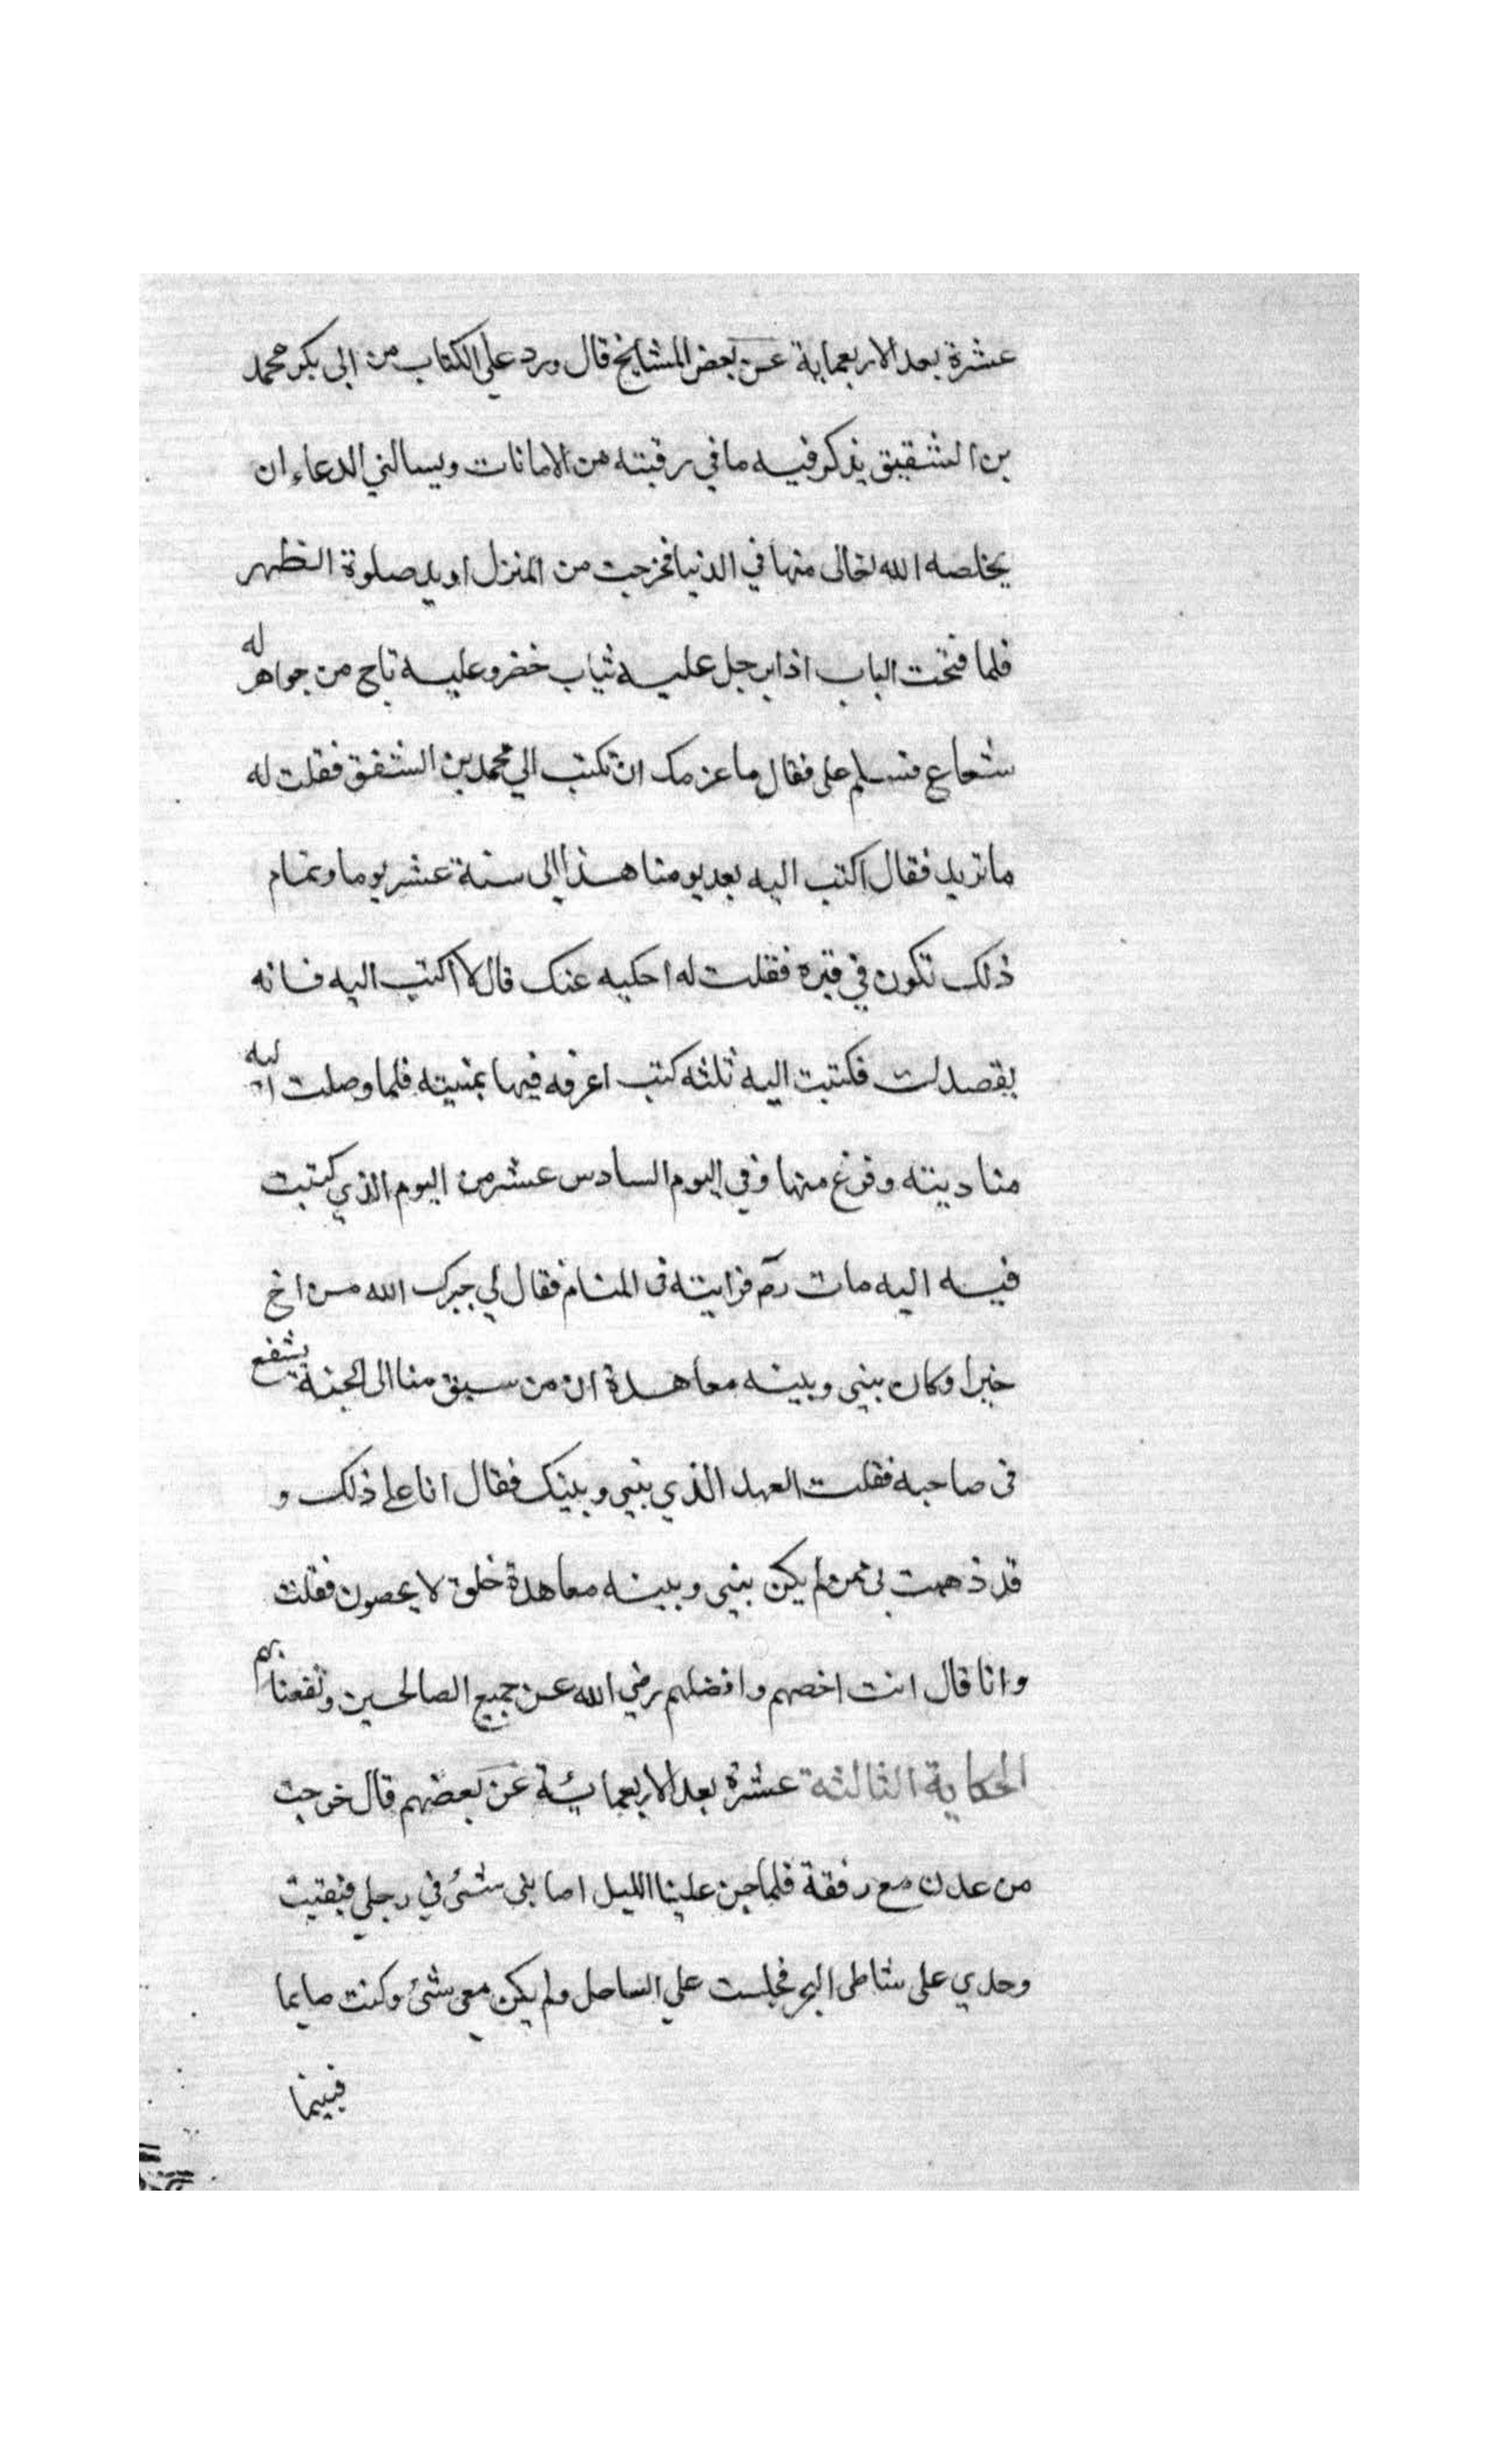 عشرة بعد الاربعماية عن بعض المشايخ قال ورد علي الكتاب من ابي بكر محمد
بن الشقيق يذكر فيه ما في رقبته من الامانات ويسالني الدعاء ان
يخلصه الله تعالى منها في الدنيا فخرجت من المنزل اريد صلوة الظهر
فلما فتحت الباب اذا برجل عليه ثياب خضر وعليه تاج من جواهر له
شعاع فسلم على فقال ما عزمك ان تكتب الي محمد بن الشفق فقلت له
ما تريد فقال اكتب اليه بعد يومنا هذا الى ستة عشر يوما وتمام
ذلك تكون في قبره فقلت له احكيه عنك قال لا اكتب اليه فانه
يقصدك فكتبت اليه ثلثه كتب اعرفه فيها بمنيته فلما وصلت اليه
منا ديته وفرغ منها وفي اليوم السادس عشر من اليوم الذي كتبت
فيه اليه مات رحم فرايته في المنام فقال لي جبرك الله من اخ
خيرا وكان بيني وبينه معاهدة ان من سبق منا الى الجنة يشفع
في صاحبه فقلت العهد الذي بيني وبينك فقال انا على ذلك و
قد ذهبت بي ممن لم يكن بيني وبينه معاهدة خلق لا يحصون فقلت
وانا قال انت اخصهم وافضلهم رضي الله عن جميع الصالحين ونفعنا بهم
الحكاية الثالثة عشرة بعد الاربعمائة عن بعضهم قال خرجت
من عدن مع رفقة فلما جن علينا الليل اصابني شئ في رجلي فبقيت
وحدي على شاطى البحر فجلست علي الساحل ولم يكن معي شئ وكنت صايما
فبينما